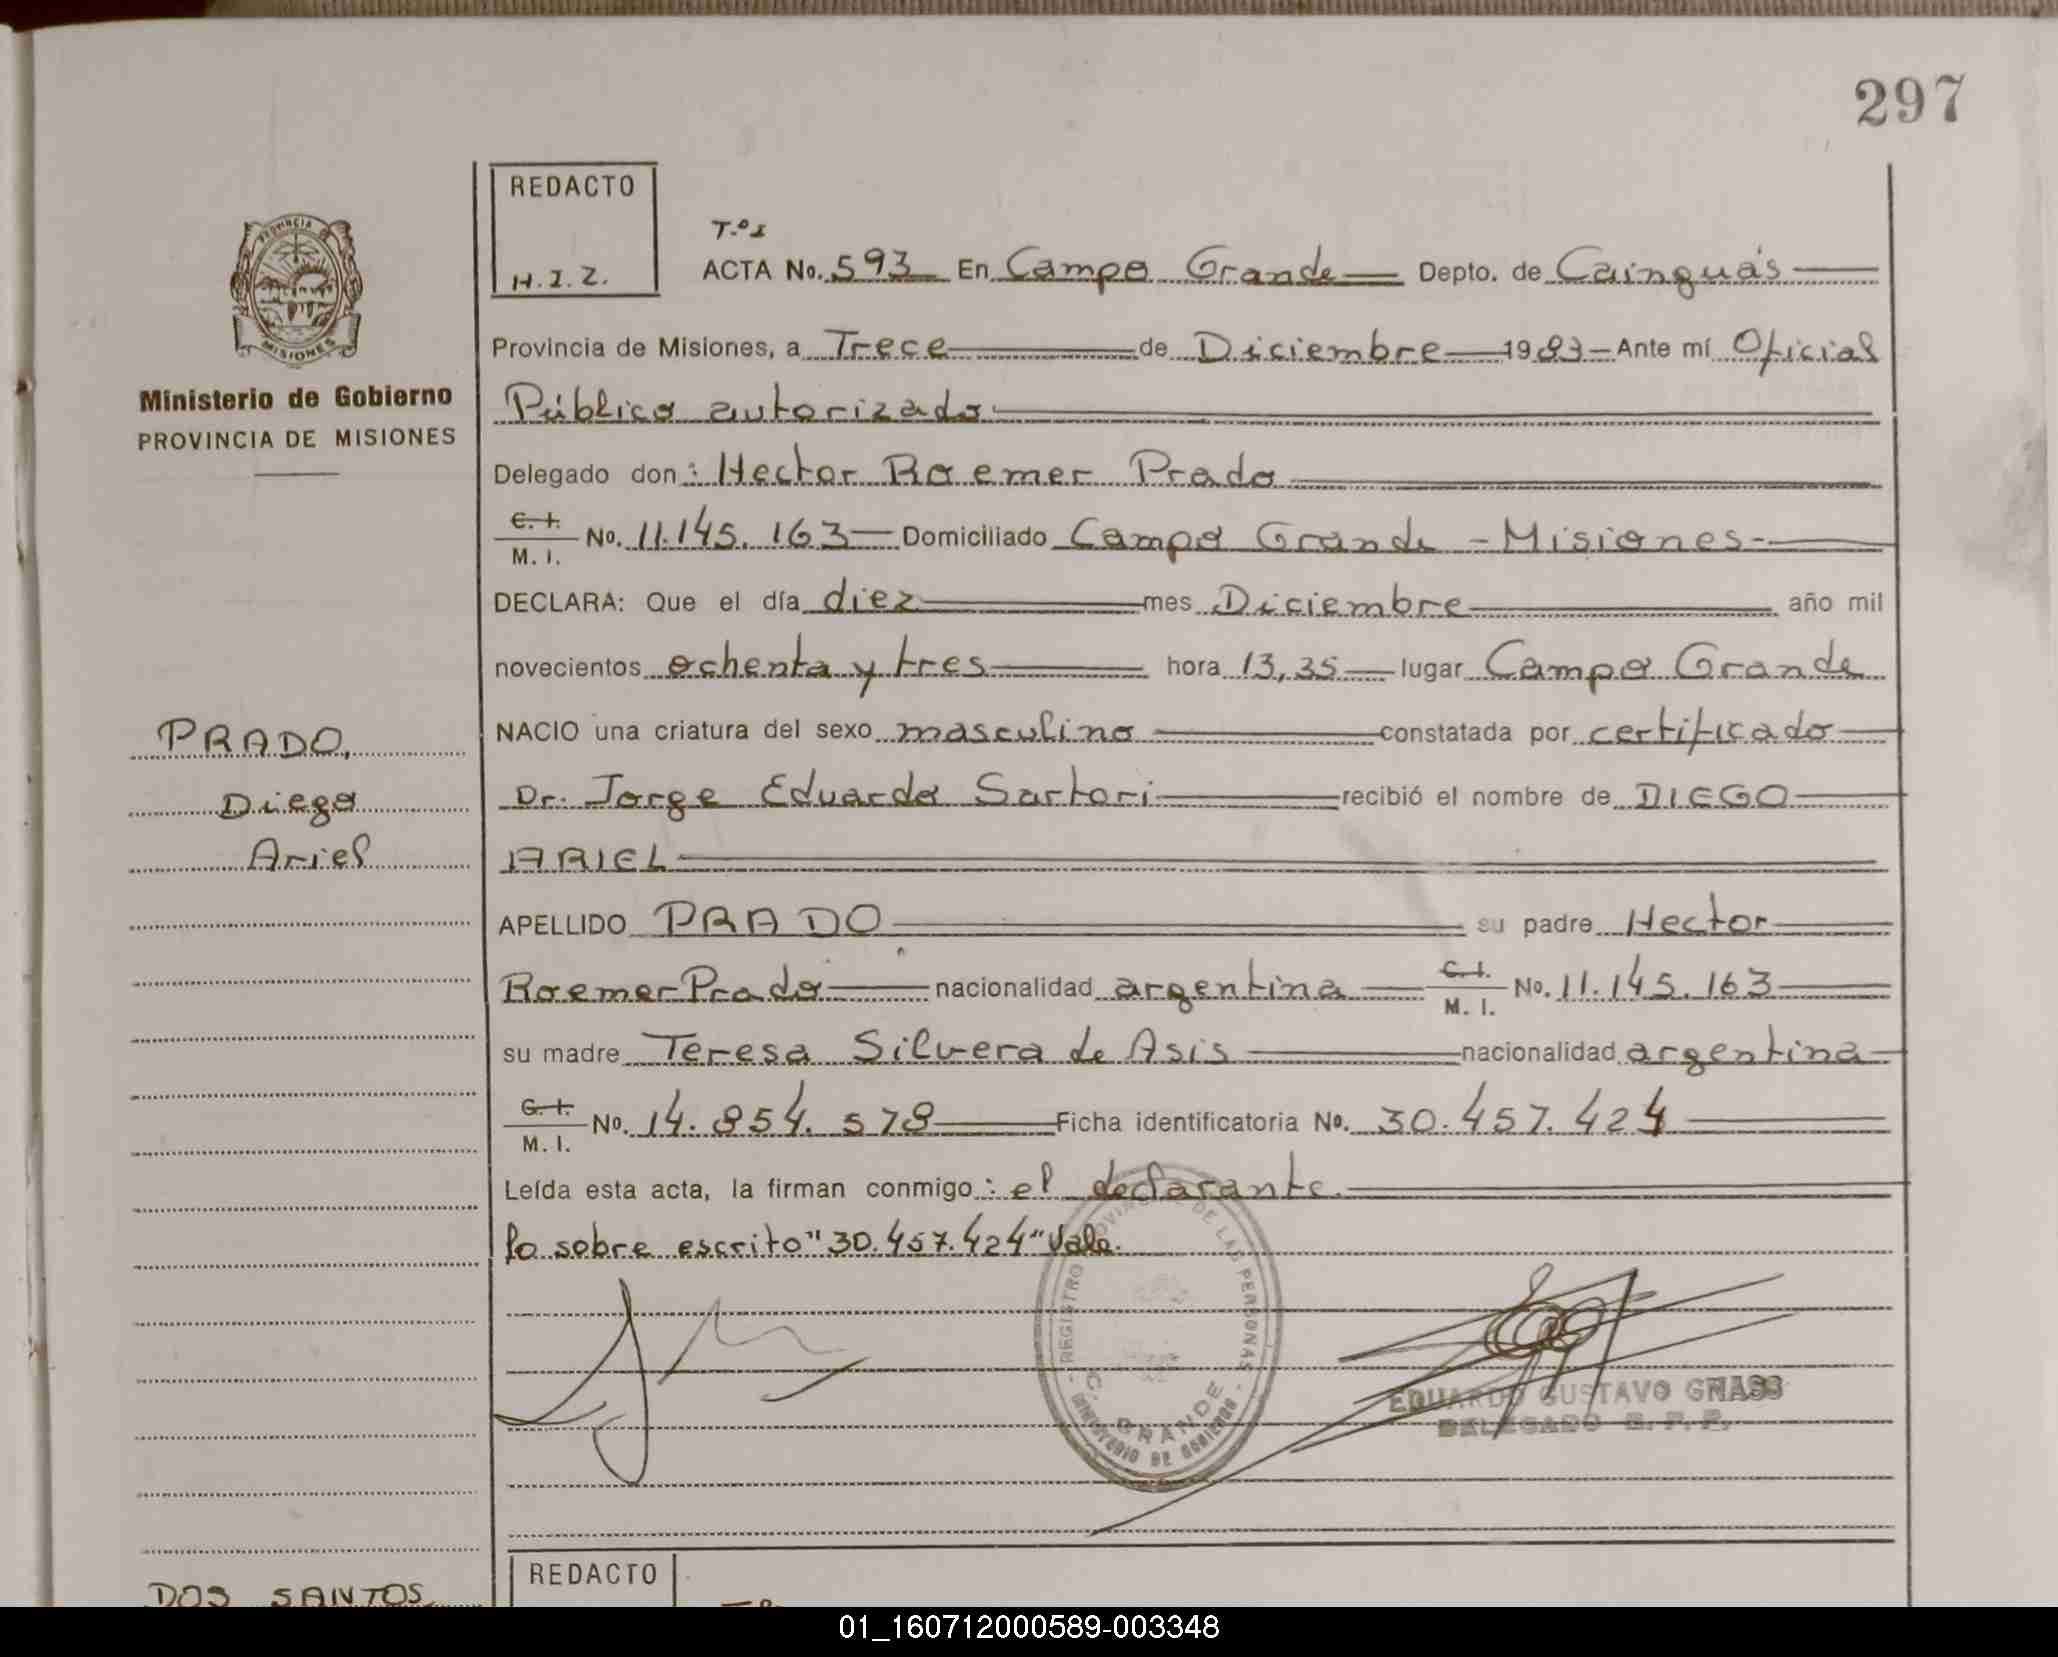 297
REDACTO
H.I.Z.
T.º I
ACTA No. 593 En Campo Grande Depto. de Cainguás
Provincia de Misiones, a Trece de Diciembre 1983 Ante mí Oficial
Público autorizado
Delegado don: Hector Roemer Prado
C. I. / M. I. No. 11.145.163 Domiciliado Campo Grande - Misiones-
DECLARA: Que el día diez mes Diciembre año mil
novecientos ochenta y tres hora 13,35 lugar Campo Grande
NACIO una criatura del sexo masculino constatada por certificado
Dr. Jorge Eduardo Sartori recibió el nombre de DIEGO
ARIEL
APELLIDO PRADO su padre Hector
Roemer Prado nacionalidad argentina C. I. / M. I. No. 11.145.163
su madre Teresa Silvera de Asis nacionalidad argentina
C. I. / M. I. No. 14.854.578 Ficha identificatoria No. 30.457.424
Leída esta acta, la firman conmigo: el declarante.
lo sobre escrito "30.457.424" Vale.
PROVINCIA
MISIONES
Ministerio de Gobierno
PROVINCIA DE MISIONES
PRADO,
Diego
Ariel
REGISTRO PROVINCIAL DE LAS PERSONAS
C. GRANDE
MINISTERIO DE GOBIERNO
EDUARDO GUSTAVO GNASS
DELEGADO R. P. P.
DOS SANTOS
REDACTO
01_160712000589-003348